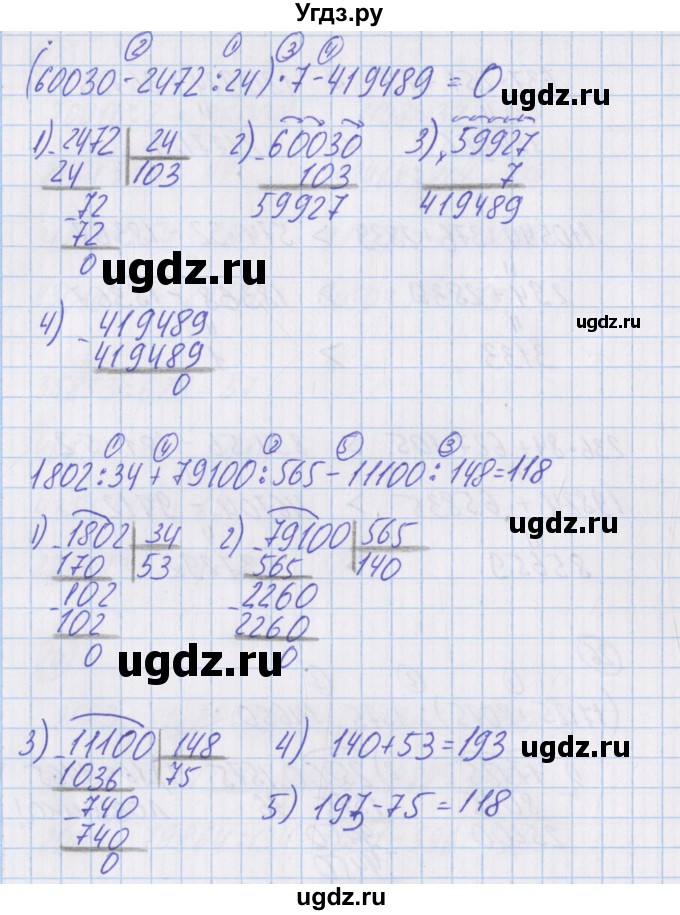 Угдз.ру
② ① ③ ④
(60030-2472:24)·7-419489=0
1) -2472 24 2) -60030 3) ×59927
24 103 103 7
-72 59927 419489
72
0
ugdz.ru
ugdz.ru
4) -419489
419489
0
① ④ ② ⑤ ③
1802:34+79100:565-11100:148=118
1) -1802 34 2) -79100 565
170 53 565 140
-102 -2260
102 2260
0 0
ugdz.ru
ugdz.ru
3) -11100 148 4) 140+53=193
1036 75
-740 5) 193-75=118
740
0
ugdz.ru